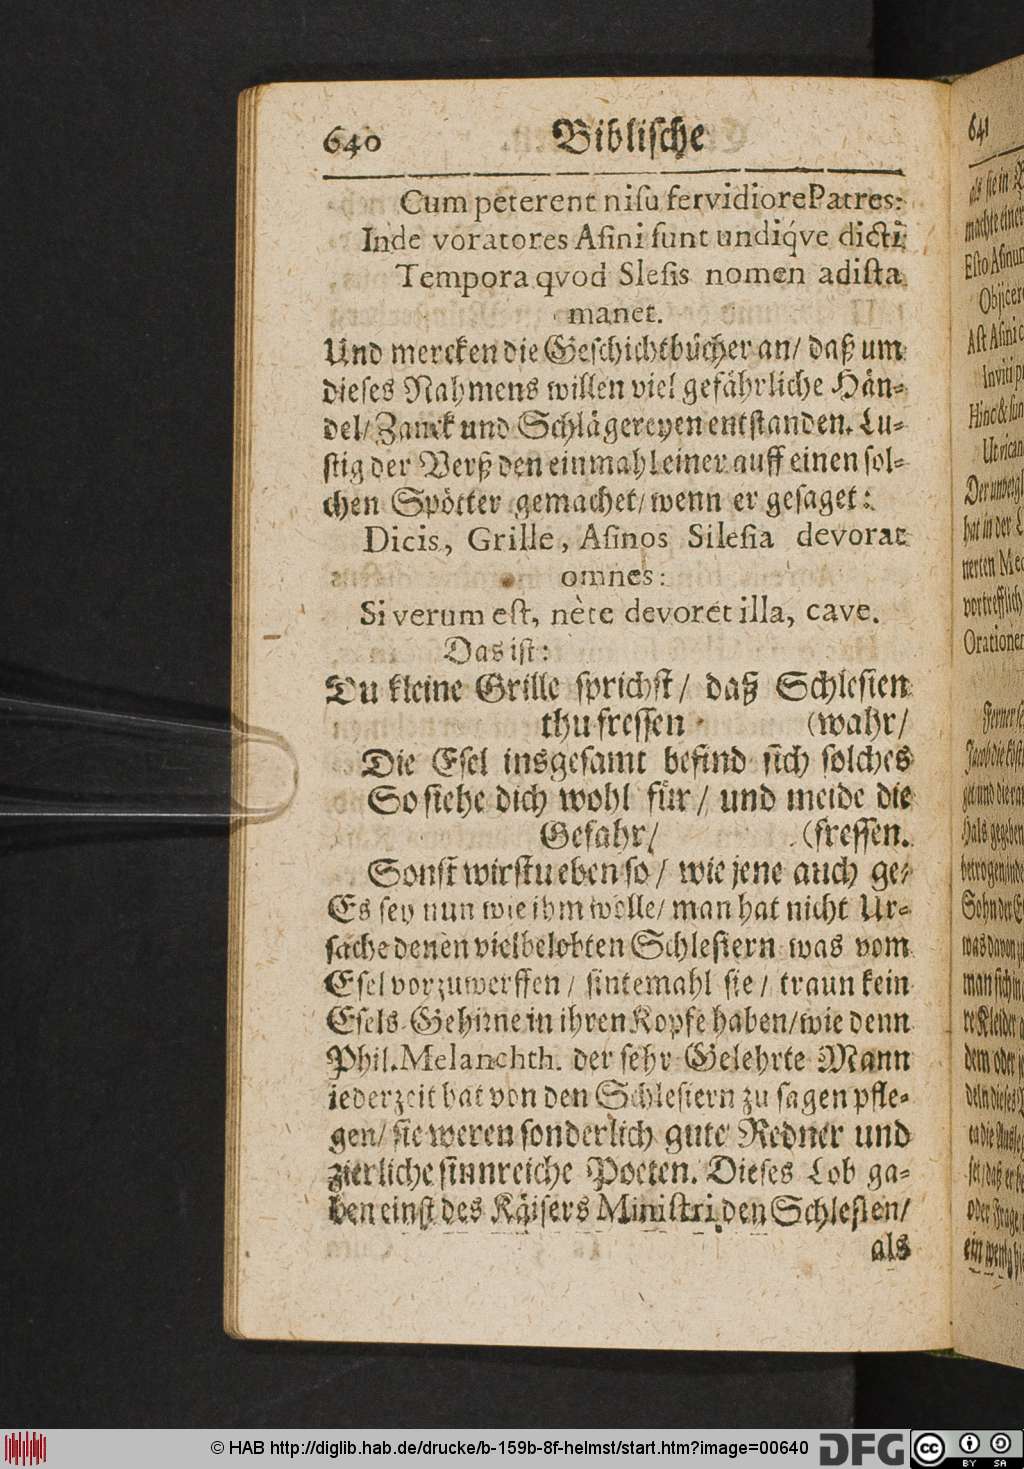 640 Biblische
Cum peterent nisu fervidiore Patres:
Inde voratores Asini sunt undiqve dicti;
Tempora qvod Slesis nomen ad ista
manet.
Und mercken die Geschichtbücher an/ daß um
dieses Nahmens willen viel gefährliche Hän-
del/ Zanck und Schlägereyen entstanden. Lu-
stig der Verß den einmahl einer auff einen sol-
chen Spötter gemachet/ wenn er gesaget:
Dicis, Grille, Asinos Silesia devorat
omnes:
Si verum est, nète devoret illa, cave.
Das ist:
Du kleine Grille sprichst/ daß Schlesien
thu fressen (wahr/
Die Esel insgesamt befind sich solches
So siehe dich wohl für/ und meide die
Gefahr/ (fressen.
Sonst wirstu eben so/ wie jene auch ge-
Es sey nun wie ihm wolle/ man hat nicht Ur-
sache denen vielbelobten Schlesiern was vom
Esel vorzuwerffen/ sintemahl sie/ traun kein
Esels-Gehirne in ihren Kopfe haben/ wie denn
Phil. Melanchth. der sehr Gelehrte Mann
iederzeit hat von den Schlesiern zu sagen pfle-
gen/ sie weren sonderlich gute Redner und
zierliche sinnreiche Poeten. Dieses Lob ga-
ben einst des Käisers Ministri den Schlesien/
als
641
als sie in
machte einen
Esto Asinu
Objicer
Ast Asini
Inviti
Hinc & sun
Ut vican
hat in der
nerten Med
vortrefflich
Orationen
Ferner
Hals gegeben
betrogen/
Sohn der
was davon
man sich
re Kleider
dem oder
deln dieses
oder Frage
ein wenig
© HAB http://diglib.hab.de/drucke/b-159b-8f-helmst/start.htm?image=00640
DFG
cc BY SA